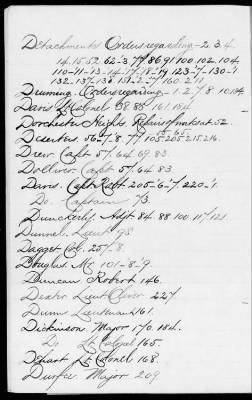 Detachments Orders regarding - 2. 3. 4.
14. 15. 52. 62-3. 77. 86 91. 100. 102. 104.
110-11-13-14-17-18-19. 123-7-130-1.
132. 137. 138.
Drumming. Orders regarding - 1. 2. 7. 8. 10.
Davis Colonel 58. 83. 161. 184
Dorchester Heights. Repairs of works at. 52.
Deserters. 56-7-8. 77. 105. 205. 215. 216.
65-65.
Drew Capt 57. 64. 69. 83.
Dolliver Capt. 57. 64. 83.
Davis. Capt Robt 205-6-7. 220-1.
Do. Captain 73.
Dunckerly. Adjt 84. 88. 100. 117. 121.
Dunnel. Lieut 98.
Dagget Col. 257-8.
Douglas. Mr. 101-8-9.
Duncan Robert 146.
Dexter Lieut Oliver 227.
Dum Lieutenant 161.
Dickinson. Major 170. 184.
Do Lt. Colonel 165.
Dehart Lt Colonel 168.
Durfee Major 209